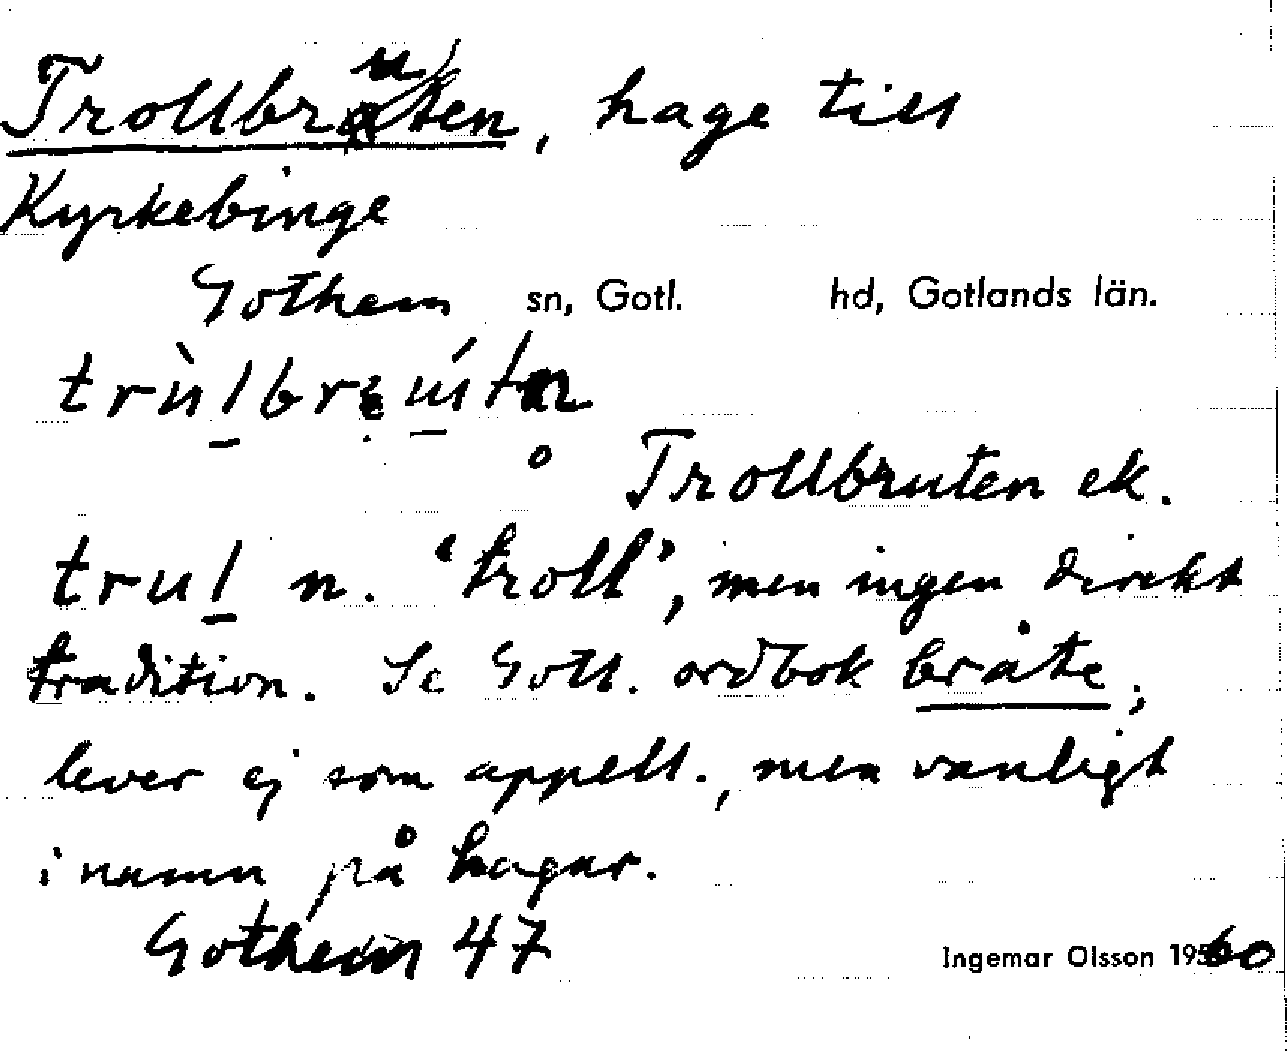 Trollbruten, hage till
Kyrkebinge
Gothem sn, Gotl. hd, Gotlands län.
Trollbruten ek.
trul n. 'troll', men ingen direkt
tradition. Se Gotl. ordbok bråte;
lever ej som appell., men vanligt
i namn på hagar.
Gothem 47
Ingemar Olsson 1960